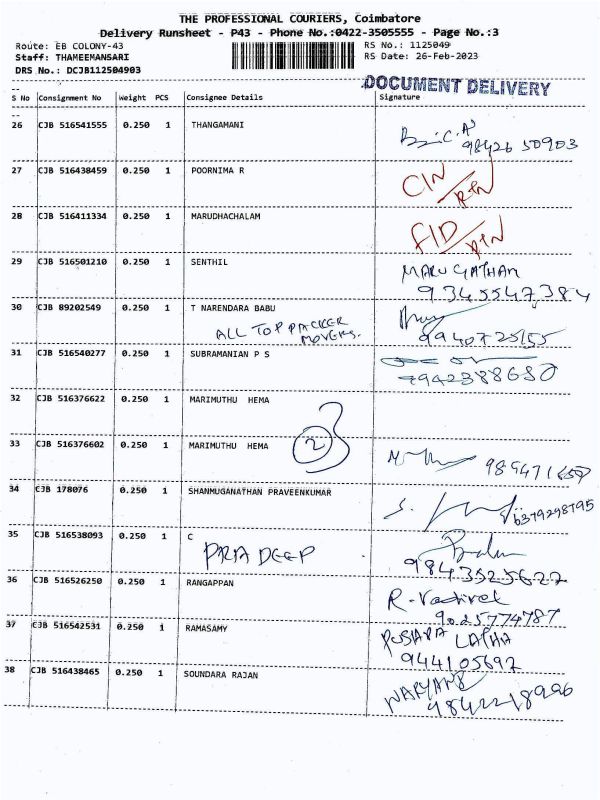 THE PROFESSIONAL COURIERS, Coimbatore
Delivery Runsheet - P43 - Phone No.:0422-3505555 - Page No.:3
Route: EB COLONY-43 RS No.: 1125049
Staff: THAMEEMANSARI RS Date: 26-Feb-2023
DRS No.: DCJB112504903
DOCUMENT DELIVERY
S No Consignment No Weight PCS Consignee Details Signature
26 CJB 516541555 0.250 1 THANGAMANI
98426 50903
27 CJB 516438459 0.250 1 POORNIMA R CIN/RTN
28 CJB 516411334 0.250 1 MARUDHACHALAM FID/RTN
29 CJB 516501210 0.250 1 SENTHIL
9345547384
30 CJB 89202549 0.250 1 T NARENDARA BABU
ALL TOP PACKER
MOVERS.
9940725155
31 CJB 516540277 0.250 1 SUBRAMANIAN P S
32 CJB 516376622 0.250 1 MARIMUTHU HEMA
33 CJB 516376602 0.250 1 MARIMUTHU HEMA 2
34 CJB 178076 0.250 1 SHANMUGANATHAN PRAVEENKUMAR
6379298795
35 CJB 516538093 0.250 1 C
PRADEEP
9843525622
36 CJB 516526250 0.250 1 RANGAPPAN R. Vadivel
9025774787
37 CJB 516542531 0.250 1 RAMASAMY PUSHPA LATHA
944105692
38 CJB 516438465 0.250 1 SOUNDARA RAJAN
9842218996